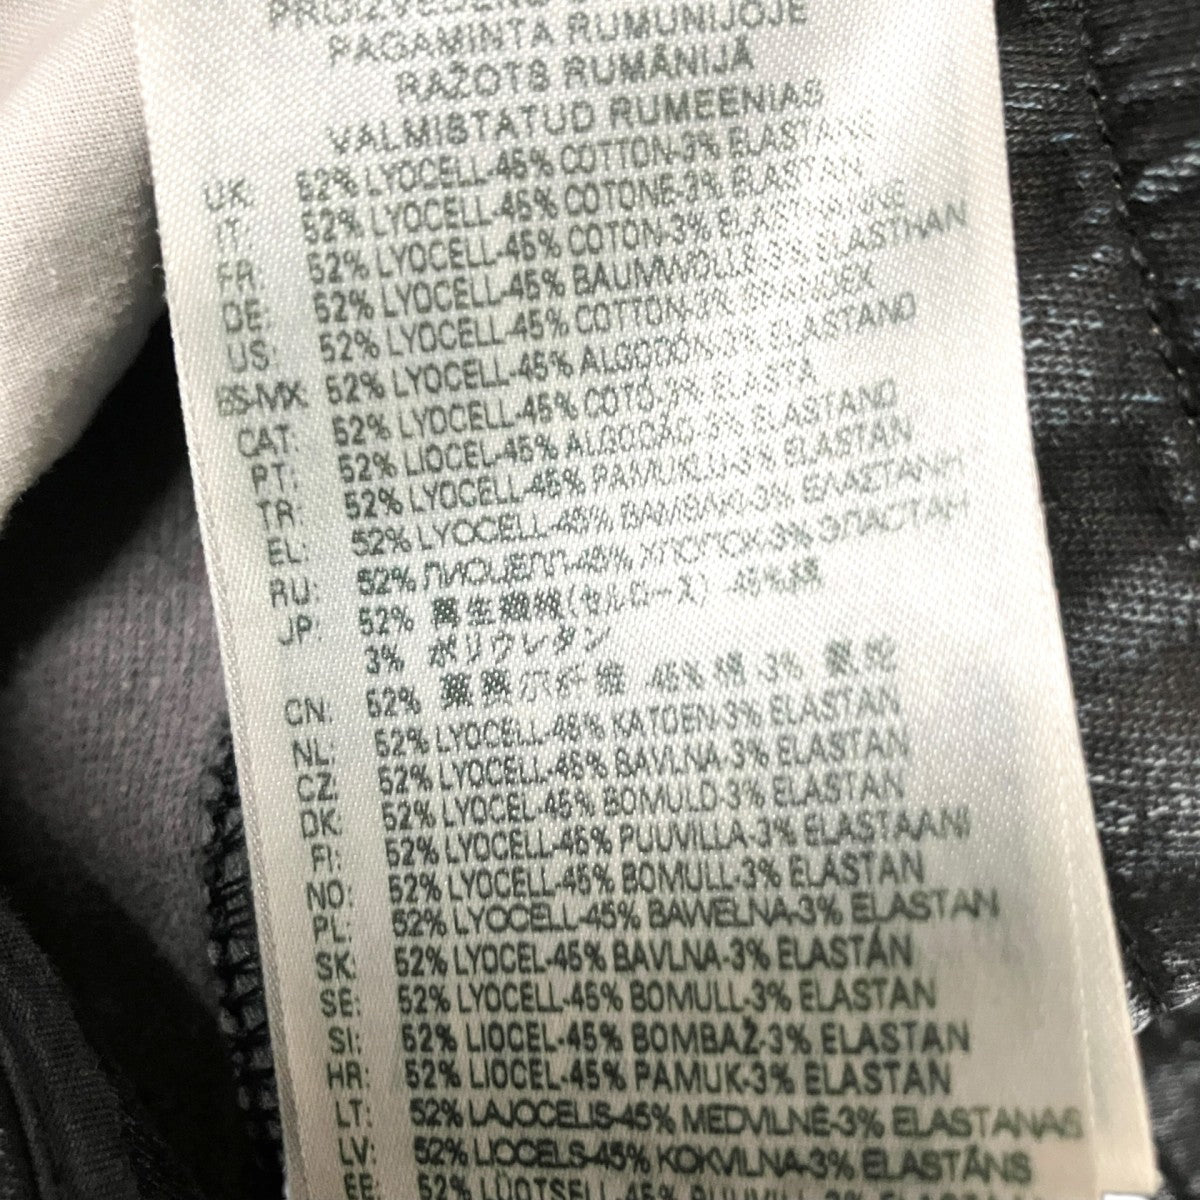 PAGAMINTA RUMUNIJOJE
RAŽOTS RUMĀNIJĀ
VALMISTATUD RUMEENIAS
UK: 52% LYOCELL-45% COTTON-3% ELASTANE
IT: 52% LYOCELL-45% COTONE-3% ELASTAN
FR: 52% LYOCELL-45% COTON-3%
DE: 52% LYOCELL-45% BAUMWOLLE-3% ELASTHAN
US: 52% LYOCELL-45% COTTON-3%
ES-MX: 52% LYOCELL-45% ALGODÓN-3% ELASTANO
CAT: 52% LYOCELL-45% COTÓ-3% ELASTÀ
PT: 52% LIOCEL-45% ALGODÃO-3% ELASTANO
TR: 52% LYOCELL-45% PAMUKLU-3% ELASTAN
EL: 52% LYOCELL-45% ΒΑΜΒΑΚΙ-3% ΕΛΑΣΤΑΝΗ
RU: 52% ЛИОЦЕЛЛ-45% ХЛОПОК-3% ЭЛАСТАН
JP: 52% 再生繊維(セルロース) -45%綿
3% ポリウレタン
CN: 52% 莱赛尔纤维 -45% 棉 -3% 氨纶
NL: 52% LYOCELL-45% KATOEN-3% ELASTAN
CZ: 52% LYOCELL-45% BAVLNA-3% ELASTAN
DK: 52% LYOCEL-45% BOMULD-3% ELASTAN
FI: 52% LYOCELL-45% PUUVILLA-3% ELASTAANI
NO: 52% LYOCELL-45% BOMULL-3% ELASTAN
PL: 52% LYOCELL-45% BAWEŁNA-3% ELASTAN
SK: 52% LYOCEL-45% BAVLNA-3% ELASTÁN
SE: 52% LYOCELL-45% BOMULL-3% ELASTAN
SI: 52% LIOCEL-45% BOMBAŽ-3% ELASTAN
HR: 52% LIOCEL-45% PAMUK-3% ELASTAN
LT: 52% LAJOCELIS-45% MEDVILNĖ-3% ELASTANAS
LV: 52% LIOCELS-45% KOKVILNA-3% ELASTĀNS
EE: 52% LÜOTSELL-45% PUUVILL-3%